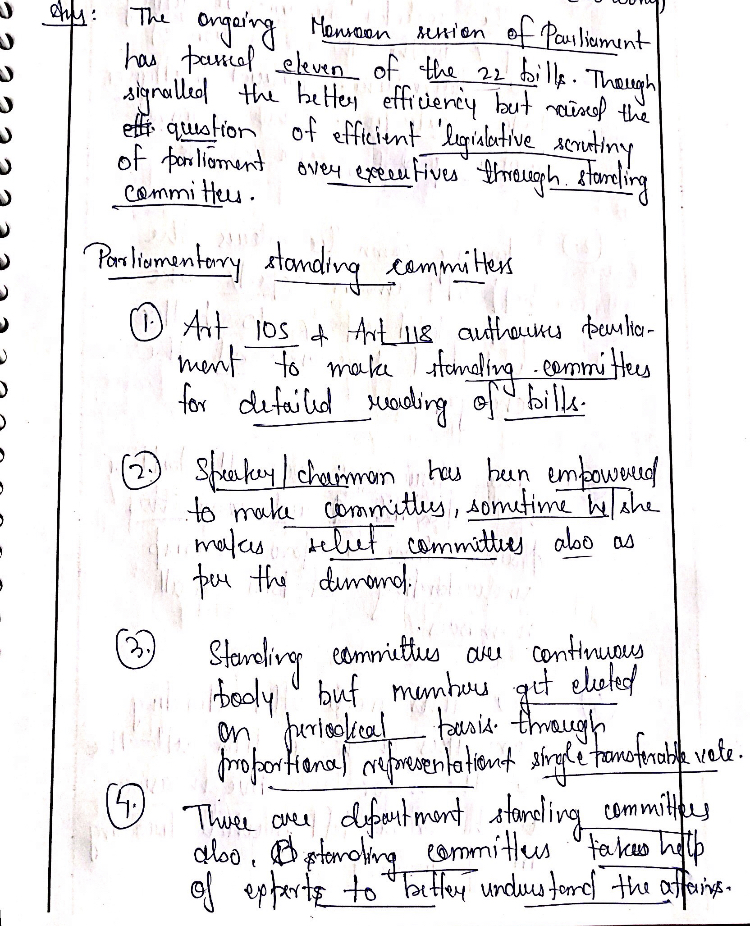 Ans: The ongoing Monsoon session of Parliament
has passed eleven of the 22 bills. Though
signalled the better efficiency but raised the
question of efficient 'legislative scrutiny
of parliament over executives through standing
committees.
Parliamentary standing committees
1. Art 105 & Art 118 authorises parlia-
ment to make standing committees
for detailed reading of bills.
2. Speaker/chairman has been empowered
to make committees, sometime he/she
makes select committees also as
per the demand.
3. Standing committees are continuous
body but members get elected
on periodical basis through
proportional representation single transferable vote.
4. There are department standing committees
also. standing committees takes help
of experts to better understand the affairs.